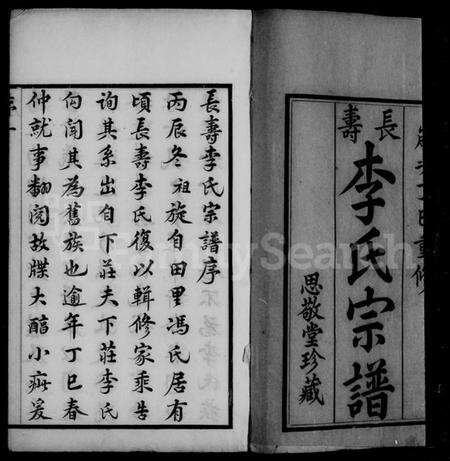 長壽
李氏宗譜
思敬堂珍藏
長壽李氏宗譜序
丙辰冬祖旋自田里馮氏居有
頃長壽李氏復以輯修家乘告
詢其系出自下莊夫下莊李氏
向聞其為舊族也逾年丁巳春
仲就事翻閱故牒大醇小疵爰
FamilySearch